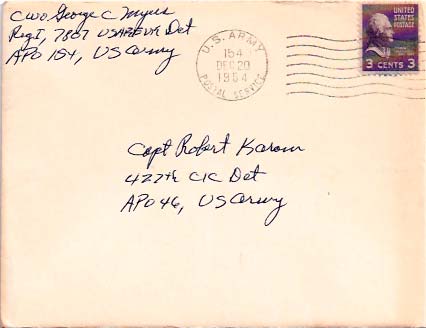 CWO George C Myers
Reg I, 7807 USAREUR Det
APO 154, US Army
U.S. ARMY
154
DEC 20
1954
POSTAL SERVICE
UNITED
STATES
POSTAGE
3 CENTS 3
Capt Robert
427th CIC Det
APO 46, US Army